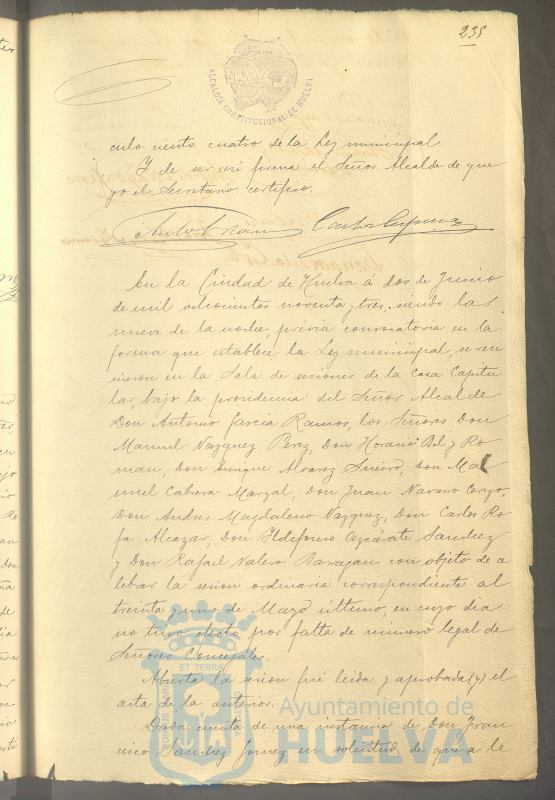 235
ALCALDIA CONSTITUCIONAL DE HUELVA
culo ciento cuatro de la Ley municipal
Y de ser asi firma el Señor Alcalde de que
yo el Secretario certifico.
En la Ciudad de Huelva á dos de Junio
de mil ochocientos noventa y tres, siendo las
nueve de la noche, previa convocatoria en la
forma que establece la Ley municipal, se reu
nieron en la Sala de sesiones de la Casa Capitu
lar, bajo la presidencia del Señor Alcalde
Don Antonio Garcia Ramos, los Señores Don
Manuel Vazquez Perez, Don Horacio Bel y Ro
man, Don Enrique Alvarez Don Ma
nuel Cabera Marzal, Don Juan Navarro
Don Andres Magdaleno Vazquez, Don Carlos Ro
ja Alcazar, Don Ildefonso Azcárate Sanchez
y Don Rafael Valero Barragan con objeto de ce
lebrar la sesion ordinaria correspondiente al
treinta y uno de Mayo ultimo, en cuyo dia
no tuvo efecto por falta de numero legal de
Señores Concejales.
Abierta la sesion fué leida y aprobada (y) el
acta de la anterior.
Dada cuenta de una instancia de Don Fran
cisco Sanchez Gomez en solicitud de que se le
PORTUS MARIS
ET TERRÆ
Ayuntamiento de
HUELVA